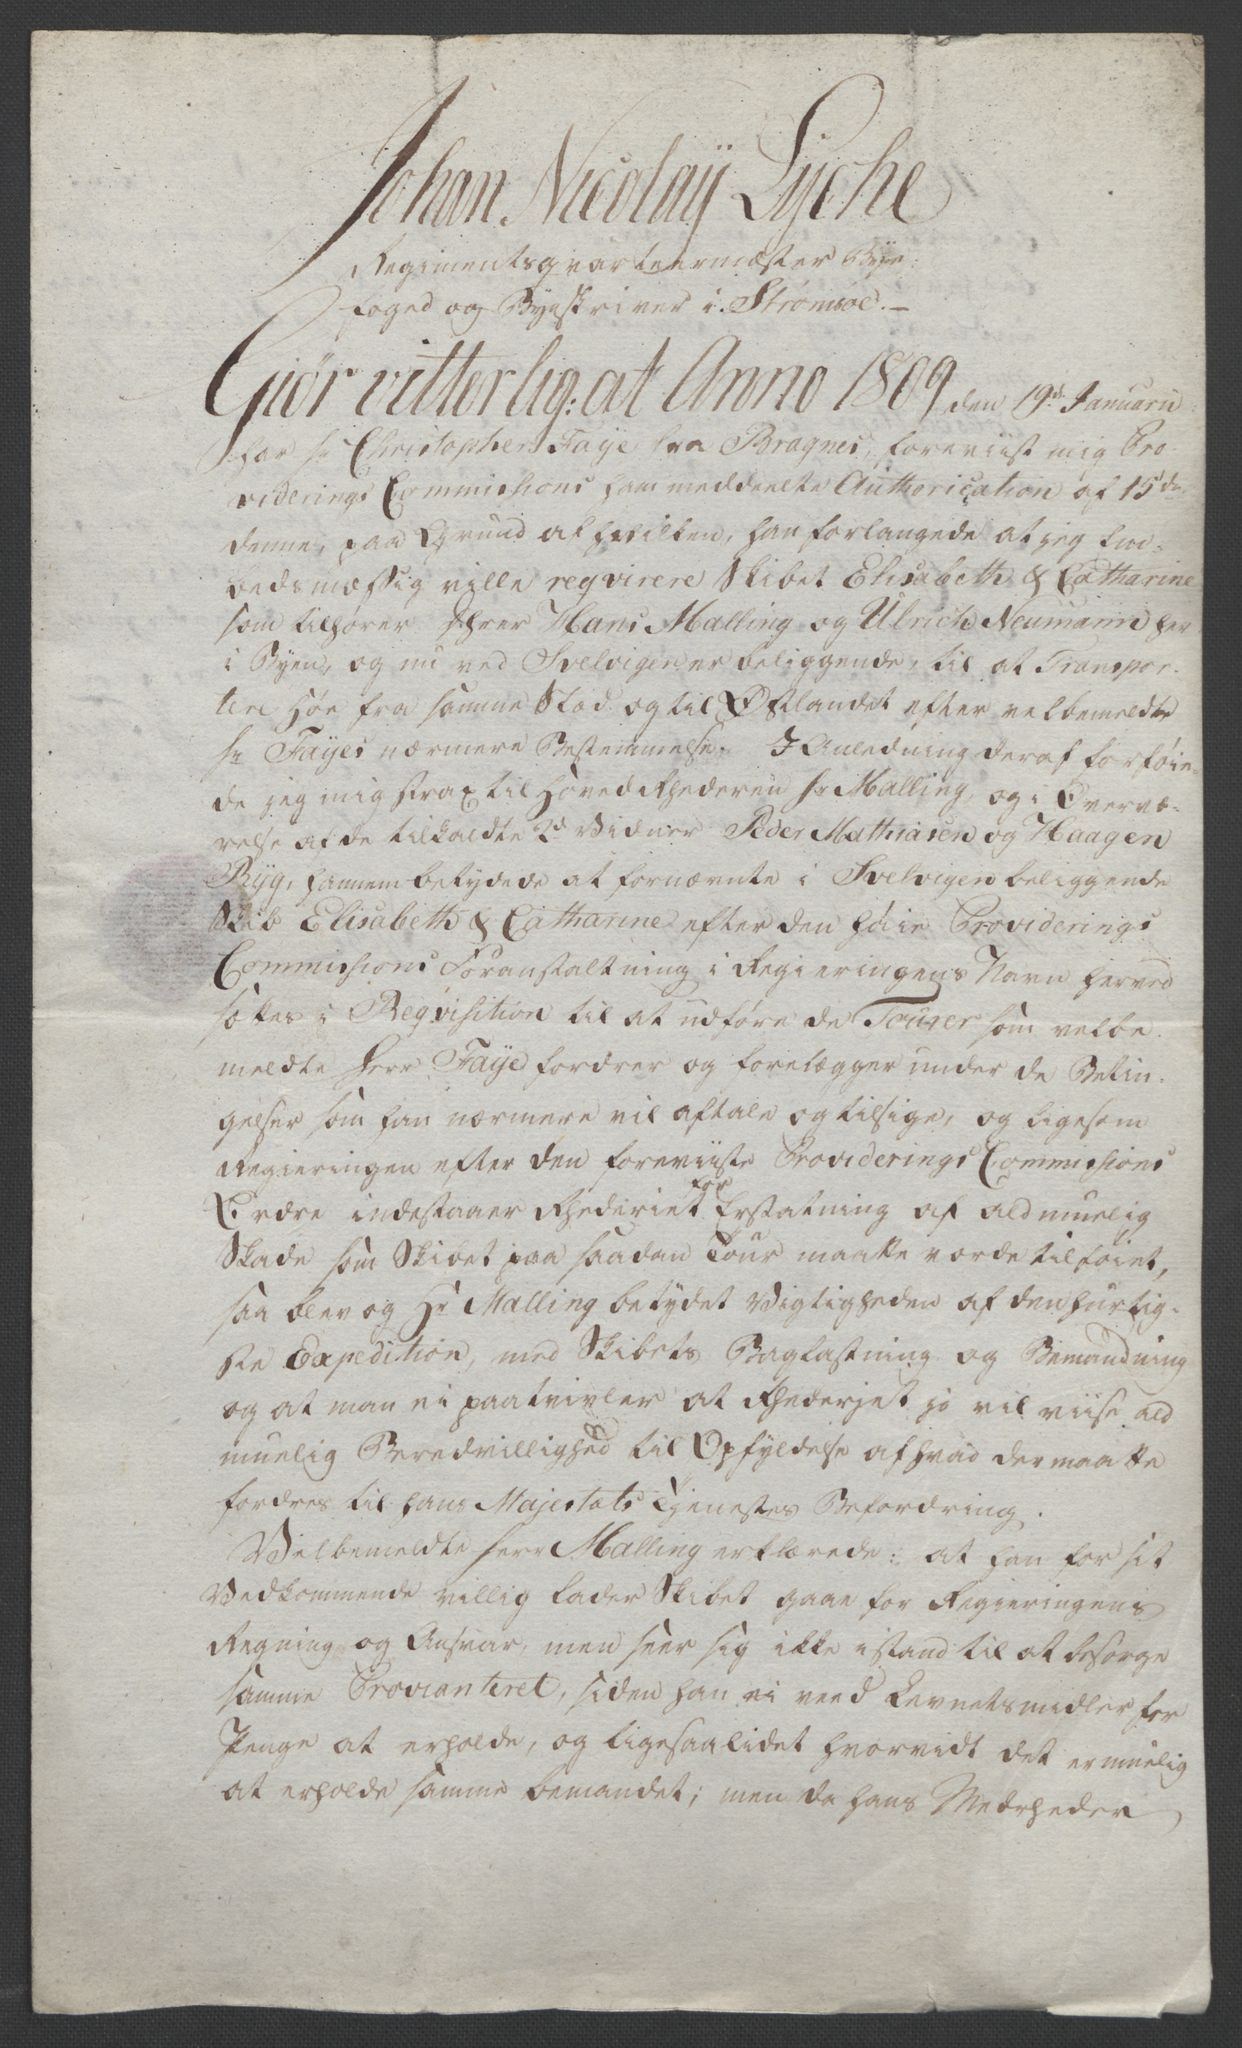 Johan Nicolaÿ Lyche
Regimentsqvarteermester Bye-
foged og Byeskriver i Strømsöe. —
Giör vitterlig: at Anno 1809 den 19de Januarii
har Hr Christopher Faÿe fra Bragnes, foreviist mig Pro-
viderings Commissions ham meddeelte Authorisation af 15de
denne, paa Grund af hvilken, han forlangede at jeg Em-
bedsmæssig ville reqvirere Skibet Elisabeth & Catharine
som tilhører Hrer Hans Malling og Ulrich Neumann her
i Byen, og nu ved Svelvigen er beliggende, til at Transpor-
tere Höe fra samme Stæd og til Østlandet efter velbemeldte
Hr Faÿes nærmere Bestemmelse. I Anledning deraf forföie-
de jeg mig strax til Hoved Rhederen Hr Malling, og i Overvæ-
relse af de tilkaldte 2de Vidner Peder Mathiasen og Haagen
Bÿg, hannem betydede at fornævnte i Svelvigen beliggende
Skib Elisabeth & Catharine efter den høie Providerings
Commissions Foranstaltning i Regieringens Navn herved
sættes i Reqvisition til at udföre de Tourer som velbe-
meldte Herr Faÿe fordrer og forelægger under de Betin-
gelser som han nærmere vil aftale og tilsige, og ligesom
Regieringen efter den foreviiste Providerings Commissions
Ordre indestaaer Rhederiet for Erstatning af ald muelig
Skade som Skibet paa saadan Tour maatte vorde tilföiet,
saa blev og Hr Malling betydet Vigtigheden af den hurtig-
ste Expedition, med Skibets Baglastning og Bemanding
og at man ei paatvivler at Rhederjet jo vil viise ald
muelig Beredvillighed til Opfyldelse af hvad der maatte
fordres til hans Majestæts Tjenestes Befordring.
Velbemeldte Herr Malling erklærede: at han for sit
Vedkommende villig lader Skibet gaae for Regieringens
Regning og Ansvar, men seer sig ikke istand til at besørge
samme Provianteret, siden han ei veed Levnetsmidler for
Penge at erholde, og ligesaalidet hvorvidt det er muelig
at erholde samme bemandet; men da hans Medrheder